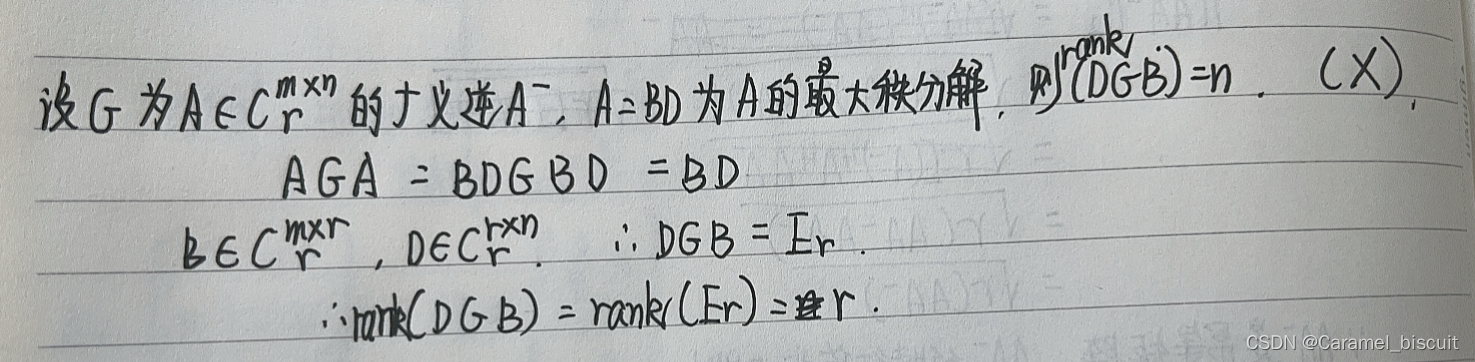 设G为A∈C_r^{m×n}的广义逆A⁻, A=BD为A的最大秩分解, 则rank(DGB)=n. (X),
AGA = BDGBD = BD
B∈C_r^{m×r}, D∈C_r^{r×n}. ∴ DGB = Er.
∴rank(DGB) = rank(Er) = r.
CSDN @Caramel_biscuit